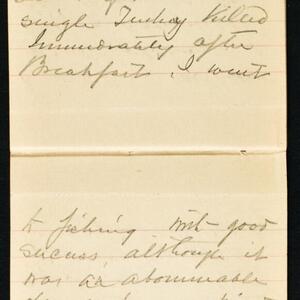 single Turkey Killed
Immediately after
Breakfast. I went
to fishing with good
success, although it
was an abominable